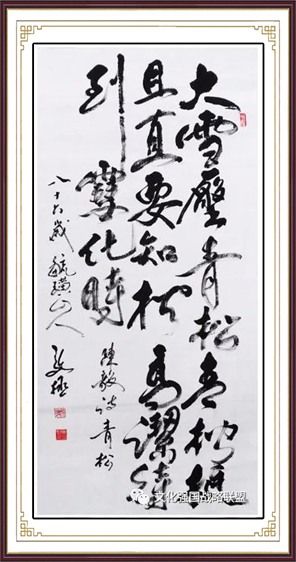 大雪壓青松青松挺
且直要知松高潔待
到雪化時
陳毅诗青松
八十六歲
山人
文化强国战略联盟